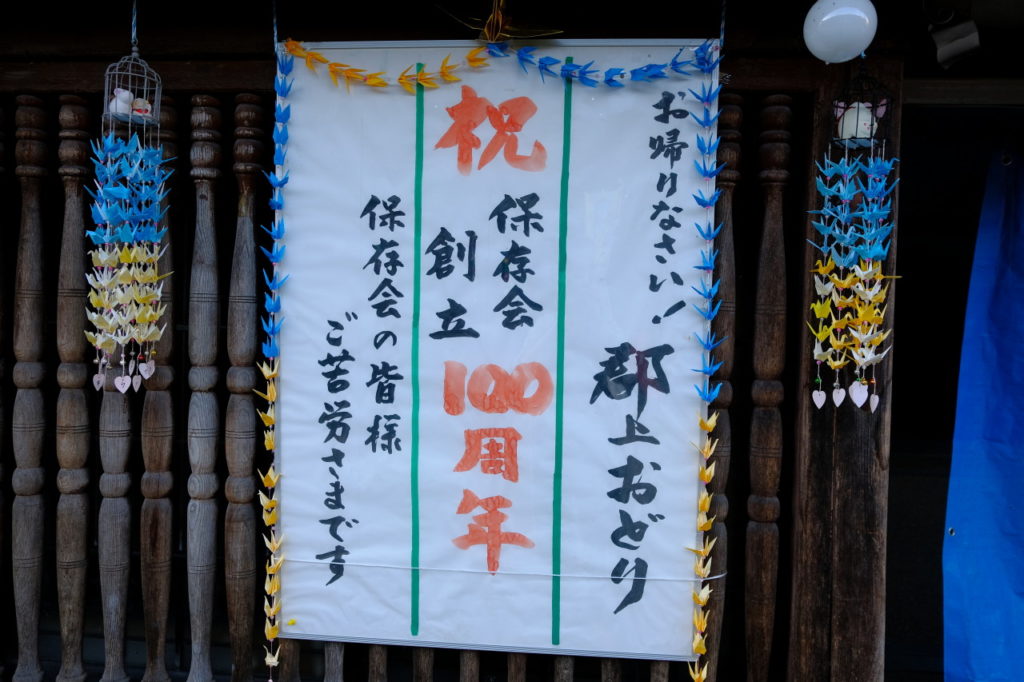 お帰りなさい!
郡上おどり
祝
保存会
創立
100周年
保存会の皆様
ご苦労さまです